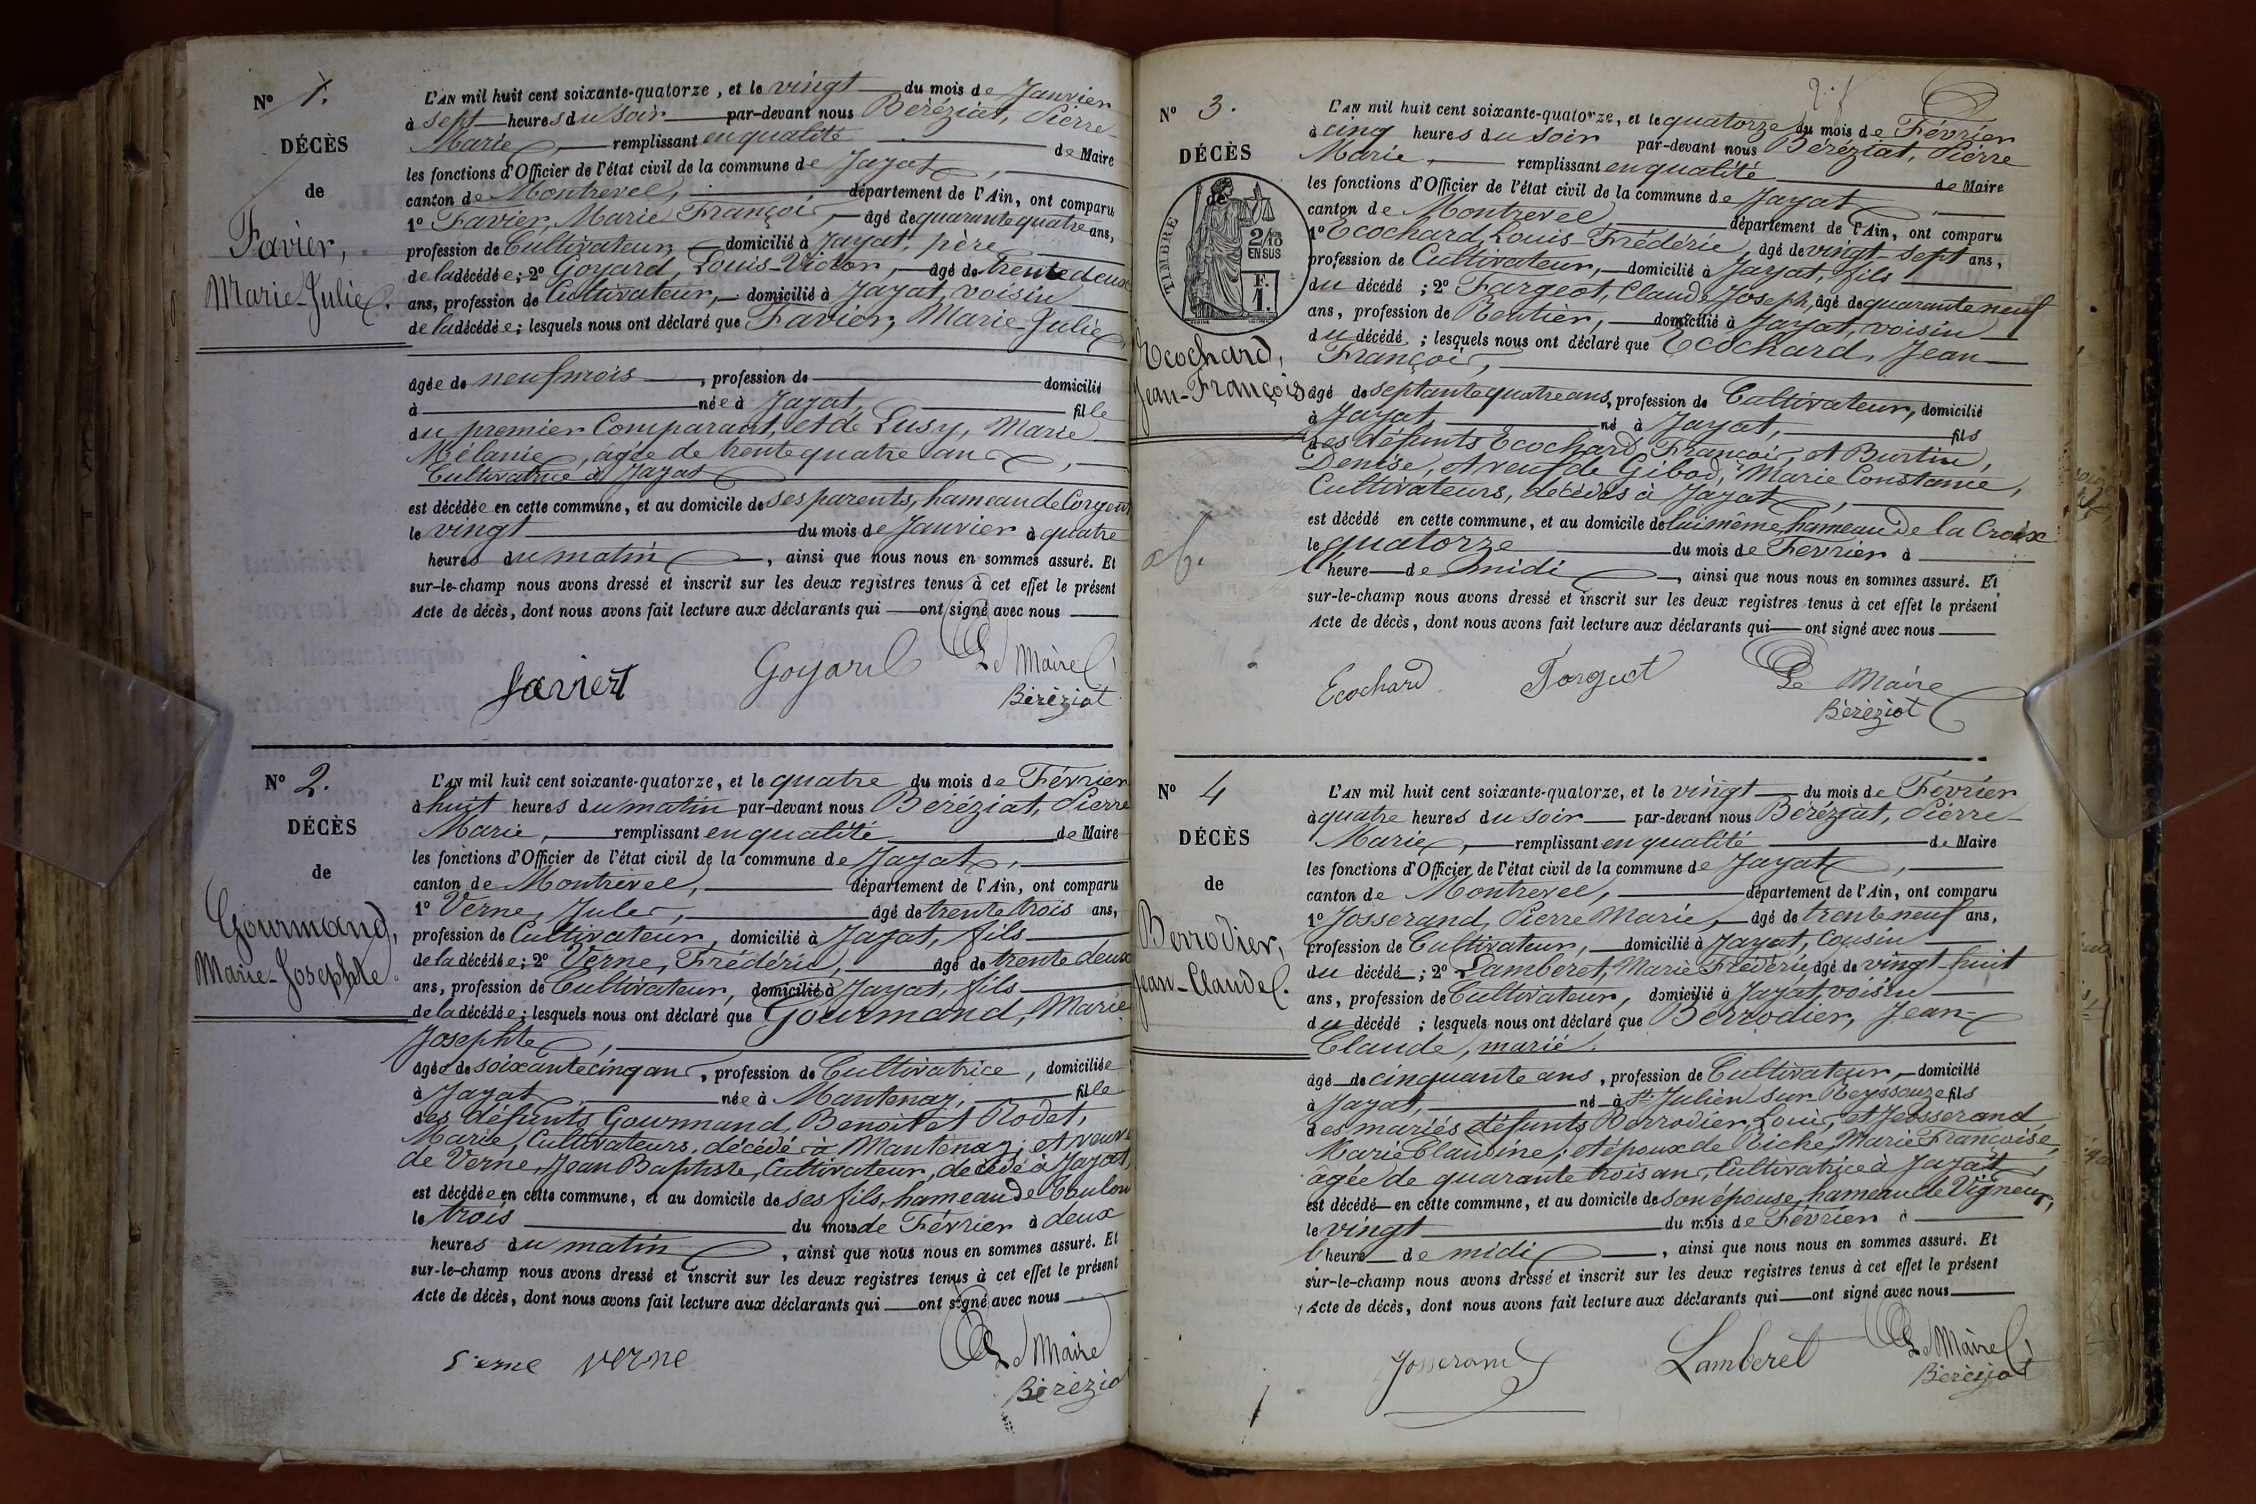 N° 1.
DÉCÈS
de
Favier,
Marie-Julie.
L'AN mil huit cent soixante-quatorze, et le vingt du mois de Janvier
à sept heures du soir par-devant nous Béréziat, Pierre
Marie, remplissant en qualité de Maire
les fonctions d'Officier de l'état civil de la commune de Jayat,
canton de Montrevel, département de l'Ain, ont comparu
1° Favier, Marie François, âgé de quarante quatre ans,
profession de Cultivateur, domicilié à Jayat, père
de la décédée; 2° Goyard, Louis-Victor, âgé de trente deux
ans, profession de Cultivateur, domicilié à Jayat, voisin
de la décédée; lesquels nous ont déclaré que Favier, Marie-Julie
âgée de neuf mois, profession de domicilié
à née à Jayat, fille
du premier Comparant, et de Lusy, Marie
Mélanie, âgée de trente quatre ans,
Cultivatrice à Jayat
est décédée en cette commune, et au domicile de ses parents, hameau de Corgent
le vingt du mois de Janvier à quatre
heures du matin, ainsi que nous nous en sommes assuré. Et
sur-le-champ nous avons dressé et inscrit sur les deux registres tenus à cet effet le présent
Acte de décès, dont nous avons fait lecture aux déclarants qui ont signé avec nous
Favier Goyard Le Maire
Béréziat
N° 2.
DÉCÈS
de
Gourmand,
Marie-Josephte.
L'AN mil huit cent soixante-quatorze, et le quatre du mois de Février
à huit heures du matin par-devant nous Béréziat, Pierre
Marie, remplissant en qualité de Maire
les fonctions d'Officier de l'état civil de la commune de Jayat,
canton de Montrevel, département de l'Ain, ont comparu
1° Verne, Jules, âgé de trente trois ans,
profession de Cultivateur, domicilié à Jayat, fils
de la décédée; 2° Verne, Frédéric, âgé de trente deux
ans, profession de Cultivateur, domicilié à Jayat, fils
de la décédée; lesquels nous ont déclaré que Gourmand, Marie
Josephte,
âgée de soixante cinq ans, profession de Cultivatrice, domiciliée
à Jayat, née à Mantenay, fille
des défunts Gourmand, Benoit et Rodet,
Marie, Cultivateurs, décédé à Mantenay; et veuve
de Verne, Jean Baptiste, Cultivateur, décédé à Jayat
est décédée en cette commune, et au domicile de ses fils, hameau de Coulon
le trois du mois de Février à deux
heures du matin, ainsi que nous nous en sommes assuré. Et
sur-le-champ nous avons dressé et inscrit sur les deux registres tenus à cet effet le présent
Acte de décès, dont nous avons fait lecture aux déclarants qui ont signé avec nous
Verne verne Le Maire
Béréziat
N° 3.
DÉCÈS
de
TIMBRE
2/10
EN SUS
F.
1.
Ecochard,
Jean-François
L'AN mil huit cent soixante-quatorze, et le quatorze du mois de Février
à cinq heures du soir par-devant nous Béréziat, Pierre
Marie, remplissant en qualité de Maire
les fonctions d'Officier de l'état civil de la commune de Jayat,
canton de Montrevel département de l'Ain, ont comparu
1° Ecochard, Louis-Frédéric, âgé de vingt-sept ans,
profession de Cultivateur, domicilié à Jayat, fils
du décédé; 2° Fargeot, Claude Joseph, âgé de quarante neuf
ans, profession de Rentier, domicilié à Jayat, voisin
du décédé; lesquels nous ont déclaré que Ecochard, Jean
François,
âgé de septante quatre ans, profession de Cultivateur, domicilié
à Jayat, né à Jayat, fils
des défunts Ecochard, François, et Burtin,
Denise, et veuf de Gibod, Marie Constance,
Cultivateurs, décédés à Jayat,
est décédé en cette commune, et au domicile de lui même, hameau de la Croix
le quatorze du mois de Février à
l'heure de midi, ainsi que nous nous en sommes assuré. Et
sur-le-champ nous avons dressé et inscrit sur les deux registres tenus à cet effet le présent
Acte de décès, dont nous avons fait lecture aux déclarants qui ont signé avec nous
Ecochard Forgeot Le Maire
Béréziat
N° 4
DÉCÈS
de
Berrodier,
Jean-Claude.
L'AN mil huit cent soixante-quatorze, et le vingt du mois de Février
à quatre heures du soir par-devant nous Béréziat, Pierre
Marie, remplissant en qualité de Maire
les fonctions d'Officier de l'état civil de la commune de Jayat,
canton de Montrevel, département de l'Ain, ont comparu
1° Josserand, Pierre Marie, âgé de trente neuf ans,
profession de Cultivateur, domicilié à Jayat, Cousin
du décédé; 2° Lamberet, Marie Frédéric, âgé de vingt-huit
ans, profession de Cultivateur, domicilié à Jayat, voisin
du décédé; lesquels nous ont déclaré que Berrodier, Jean-
Claude, marié.
âgé de cinquante ans, profession de Cultivateur, domicilié
à Jayat, né à St Julien sur Reyssouze fils
des mariés défunts Berrodier, Louis, et Josserand
Marie Claudine; et époux de Riche, Marie Françoise,
âgée de quarante trois ans, Cultivatrice à Jayat
est décédé en cette commune, et au domicile de son épouse, hameau de Vigneux,
le vingt du mois de Février à
l'heure de midi, ainsi que nous nous en sommes assuré. Et
sur-le-champ nous avons dressé et inscrit sur les deux registres tenus à cet effet le présent
Acte de décès, dont nous avons fait lecture aux déclarants qui ont signé avec nous
Josserand Lamberet Le Maire
Béréziat